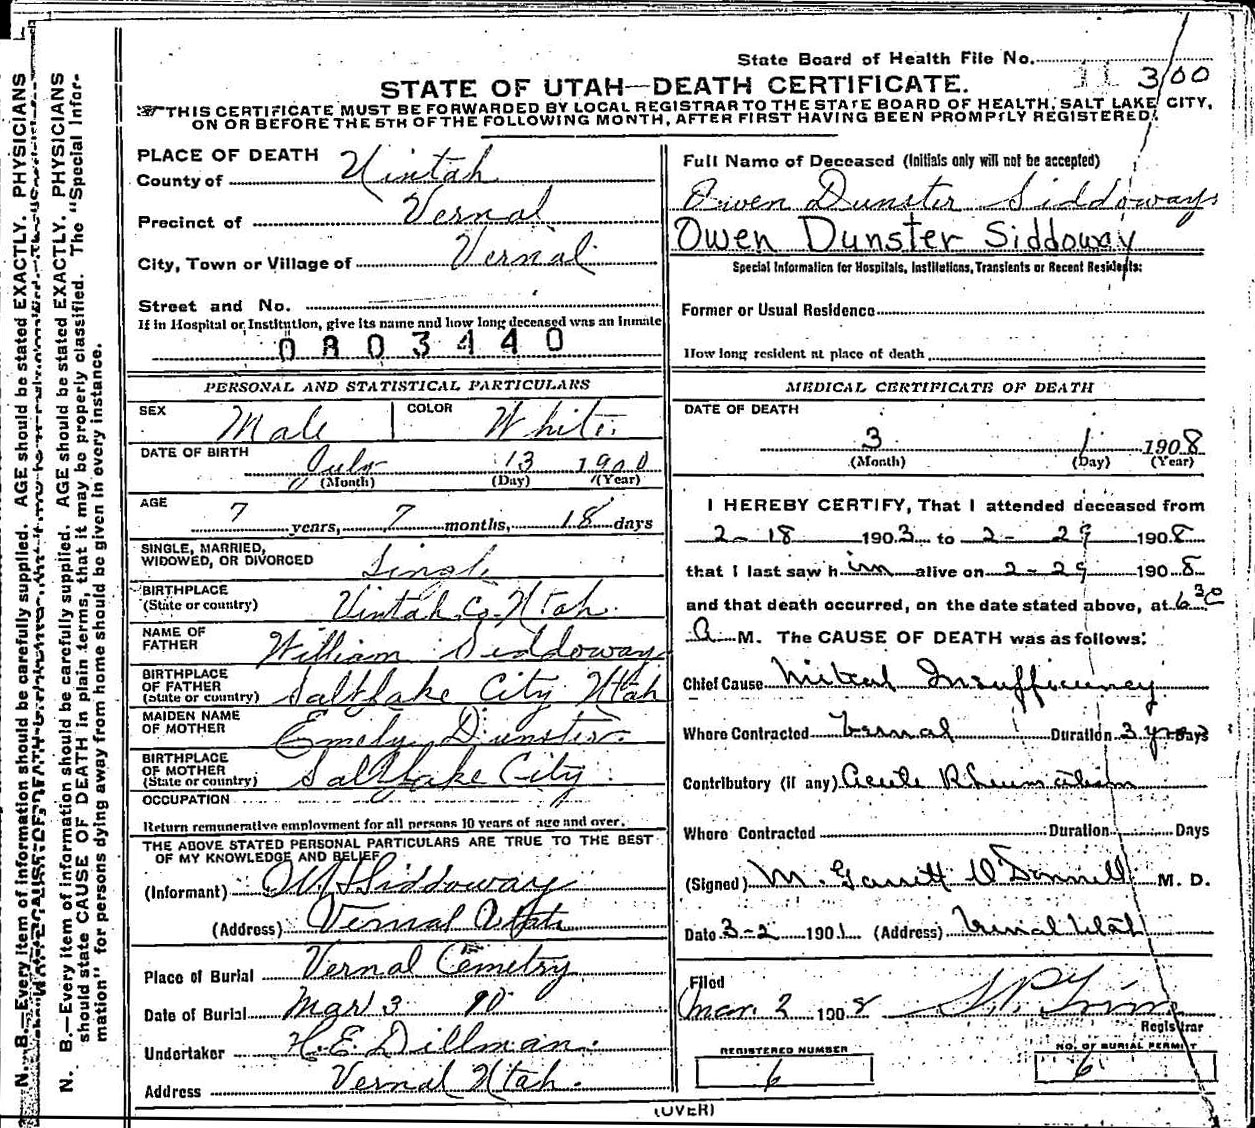 State Board of Health File No. 11 300
STATE OF UTAH—DEATH CERTIFICATE.
THIS CERTIFICATE MUST BE FORWARDED BY LOCAL REGISTRAR TO THE STATE BOARD OF HEALTH, SALT LAKE CITY,
ON OR BEFORE THE 5TH OF THE FOLLOWING MONTH, AFTER FIRST HAVING BEEN PROMPTLY REGISTERED.
PLACE OF DEATH
County of Uintah
Precinct of Vernal
City, Town or Village of Vernal
Street and No.
If in Hospital or Institution, give its name and how long deceased was an inmate
0803440
PERSONAL AND STATISTICAL PARTICULARS
SEX Male COLOR White
DATE OF BIRTH July 13 1900
(Month) (Day) (Year)
AGE 7 years, 7 months, 18 days
SINGLE, MARRIED,
WIDOWED, OR DIVORCED Single
BIRTHPLACE
(State or country) Uintah Co. Utah.
NAME OF
FATHER William Siddoway
BIRTHPLACE
OF FATHER
(State or country) Salt Lake City Utah
MAIDEN NAME
OF MOTHER Emely Dunster.
BIRTHPLACE
OF MOTHER
(State or country) Salt Lake City
OCCUPATION
Return remunerative employment for all persons 10 years of age and over.
THE ABOVE STATED PERSONAL PARTICULARS ARE TRUE TO THE BEST
OF MY KNOWLEDGE AND BELIEF
(Informant) Siddoway
(Address) Vernal Utah
Place of Burial Vernal Cemetry
Date of Burial Mar 3
Undertaker H.E. Dillman.
Address Vernal Utah.
Full Name of Deceased (Initials only will not be accepted)
Owen Dunster Siddoways
Owen Dunster Siddoway
Special Information for Hospitals, Institutions, Transients or Recent Residents:
Former or Usual Residence
How long resident at place of death
MEDICAL CERTIFICATE OF DEATH
DATE OF DEATH
3 1 1908
(Month) (Day) (Year)
I HEREBY CERTIFY, That I attended deceased from
2-18 1903 to 2-29 1908
that I last saw him alive on 2-29 1908
and that death occurred, on the date stated above, at 6 30
A M. The CAUSE OF DEATH was as follows:
Chief Cause Mitral Insufficiency
Where Contracted Vernal Duration 3 years Days
Contributory (if any) Acute Rheumatism
Where Contracted Duration Days
(Signed) M. Garrett O'Donnell M. D.
Date 3-2 1901 (Address) Vernal Utah
Filed
Mar. 2 1908
Registrar
REGISTERED NUMBER
6
NO. OF BURIAL PERMIT
6
(OVER)
N. B.—Every item of information should be carefully supplied. AGE should be stated EXACTLY. PHYSICIANS
N. B.—Every item of information should be carefully supplied. AGE should be stated EXACTLY. PHYSICIANS
should state CAUSE OF DEATH in plain terms, that it may be properly classified. The "Special Infor-
mation" for persons dying away from home should be given in every instance.